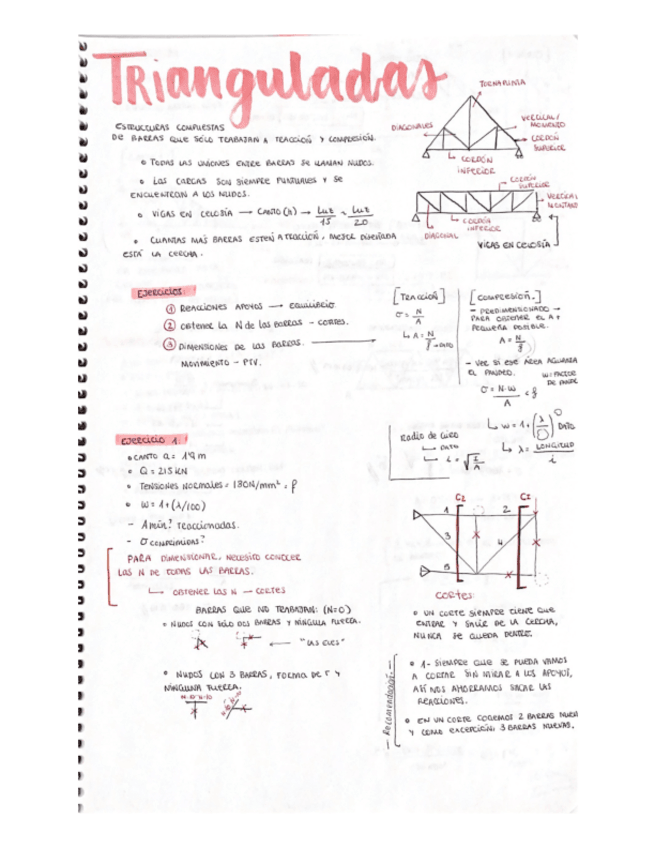 TRianguladas
ESTRUCTURAS COMPUESTAS
DE BARRAS QUE SÓLO TRABAJAN A TRACCIÓN Y COMPRESIÓN.
• TODAS LAS UNIONES ENTRE BARRAS SE LLAMAN NUDOS.
• LAS CARGAS SON SIEMPRE PUNTUALES Y SE
ENCUENTRAN A LOS NUDOS.
• VIGAS EN CELOSÍA → CANTO (h) → Luz/15 ÷ Luz/20
• CUANTAS MÁS BARRAS ESTÉN A TRACCIÓN, MEJOR DISEÑADA
ESTÁ LA CERCHA.
DIAGONALES
VERTICAL/
MONTANTE
CORDÓN
SUPERIOR
CORDÓN
INFERIOR
CORDÓN
SUPERIOR
VERTICAL
MONTANTE
CORDÓN
INFERIOR
DIAGONAL
VIGAS EN CELOSÍA
EJERCICIOS:
① REACCIONES APOYOS → EQUILIBRIO.
② OBTENER LA N de las BARRAS - CORTES.
③ DIMENSIONES DE LAS BARRAS.
MOVIMIENTO - PTV.
[TRACCIÓN]
σ = N/A
↳ A = N/f → DATO
[COMPRESIÓN.]
- PREDIMENSIONADO →
PARA OBTENER EL A +
PEQUEÑA POSIBLE.
A = N/f
- VER SI ESE ÁREA AGUANTA
EL PANDEO.
W: FACTOR
DE PANDE
σ = N·W/A < f
↳ W = 1 + (λ/) DATO
↳ λ = LONGITUD/i
Radio de Giro
↳ DATO
↳ i = √I/A
EJERCICIO 1:
• CANTO a = m
• Q = 215 kN
• TENSIONES NORMALES = 180N/mm² = f
• W = 1 + (λ/100)
- Amín? traccionadas.
- σ comprimidas?
PARA DIMENSIONAR, NECESITO CONOCER
LAS N DE TODAS LAS BARRAS.
↳ OBTENER LAS N — CORTES
BARRAS QUE NO TRABAJAN: (N=0)
• NUDOS CON SÓLO DOS BARRAS Y NINGUNA FUERZA.
← "LAS ELES"
• NUDOS CON 3 BARRAS, FORMA DE T Y
NINGUNA FUERZA.
C2
C1
1
2
3
4
5
CORTES:
• UN CORTE SIEMPRE TIENE QUE
ENTRAR Y SALIR DE LA CERCHA,
NUNCA SE QUEDA DENTRO.
— Recomendación —
• 1- SIEMPRE QUE SE PUEDA VAMOS
A CORTAR SIN MIRAR A LOS APOYOS,
ASÍ NOS AHORRAMOS SACAR LAS
REACCIONES.
• EN UN CORTE COGEMOS 2 BARRAS NUEV
Y COMO EXCEPCIÓN: 3 BARRAS NUEVAS.